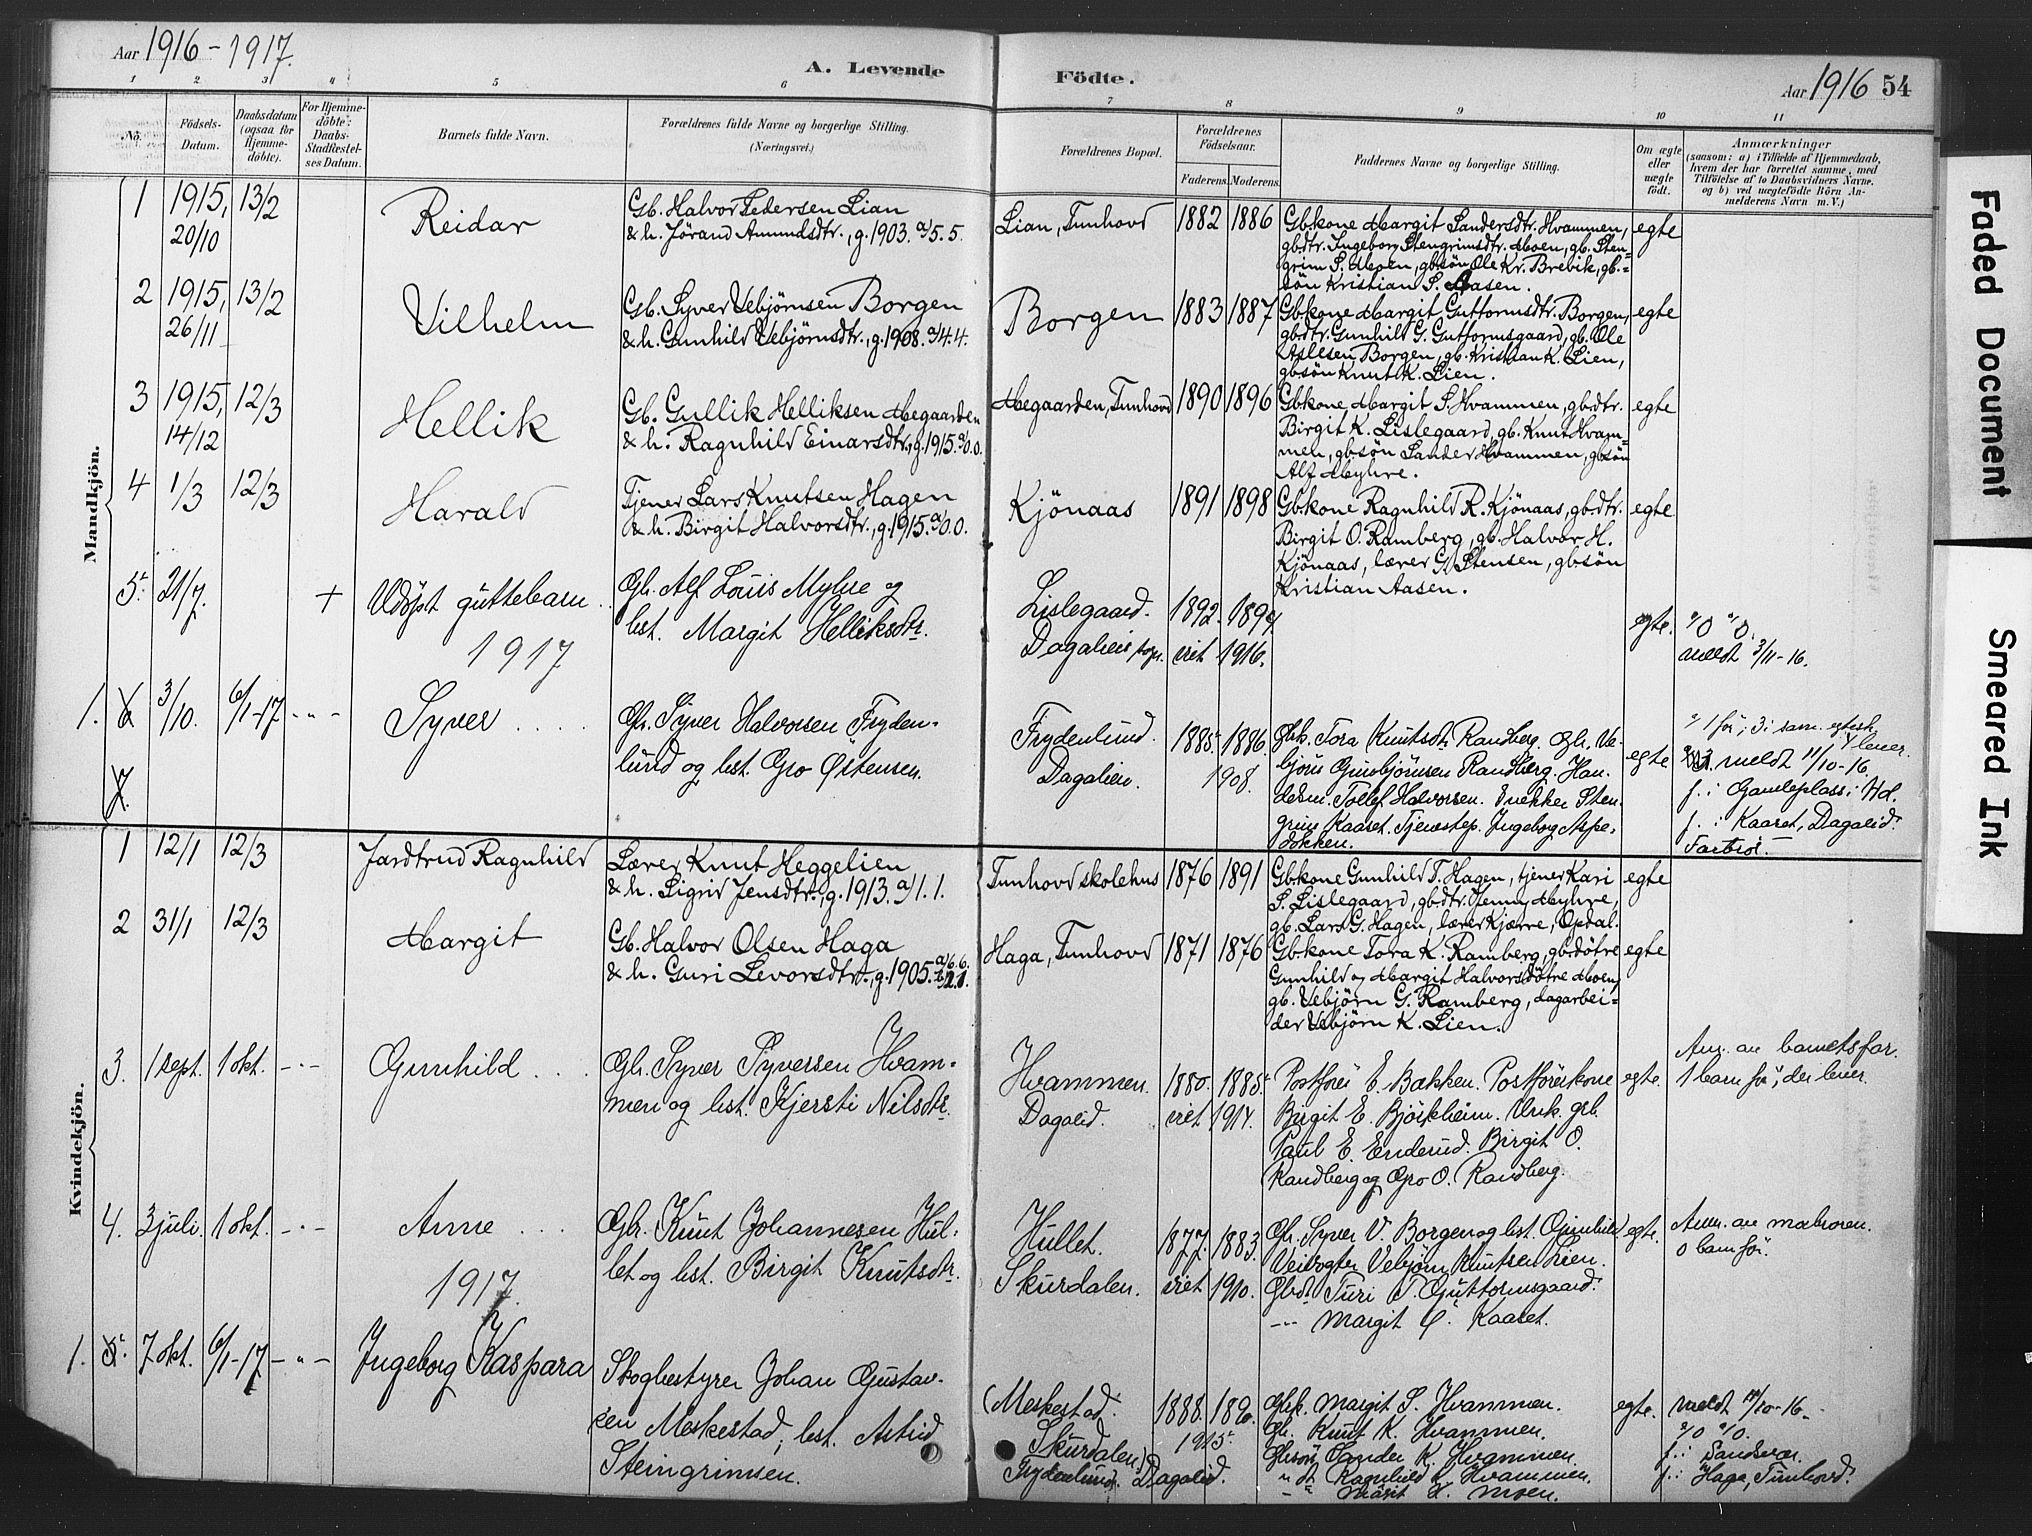 Aar 1916-1917.
A. Levende
Födte.
Aar 1916 54
1 2 3 4 5 6 7 8 9 10 11
No.
Födsels-
Datum.
Daabsdatum
(ogsaa for
Hjemme-
döbte).
For Hjemme-
döbte:
Daabs-
Stadfæstel-
ses Datum.
Barnets fulde Navn.
Forældrenes fulde Navne og borgerlige Stilling.
(Næringsvei.)
Forældrenes Bopæl.
Forældrenes
Födselsaar.
Faderens. Moderens.
Faddernes Navne og borgerlige Stilling.
Om ægte
eller
uægte
födt.
Anmærkninger
(saasom: a) i Tilfælde af Hjemmedaab,
hvem der har forrettet samme, med
Tilföielse af to Daabsvidners Navne.
og b) ved uægtefödte Börn An-
melderens Navn m. V.)
Mandkjön.
1 1915, 20/10 13/2 Reidar
Gb. Halvor Pedersen Lian
& h. Jörand Amundsdtr., g. 1903. a/5.5.
Lian, Tunhovd 1882 1886
Gbkone Margit Sandersdtr. Hvammen,
gbdtr. Ingeborg Stengrimsdtr. Moen, gb. Sten-
grim S. Moen, gbsön Ole Kr. Brevik, gb.-
sön Kristian S. Aasen.
egte
2 1915, 26/11 13/2 Vilhelm
Gb. Syver Vebjörnsen Borgen
& h. Gunhild Vebjörnsdtr., g. 1908. a/4.4.
Borgen 1883 1887
Gbkone Margit Guttormsdtr. Borgen,
gbdtr. Gunhild G. Guttormsgaard, gb. Ole
Aslesen Borgen, gb. Kristian K. Lien,
gbsön Knut K. Lien.
egte
3 1915, 14/12 12/3 Hellik
Gb. Gullik Helliksen Megaarden
& h. Ragnhild Einarsdtr., g. 1915. a/0.0.
Megaarden, Tunhovd 1890 1896
Gbkone Margit S. Hvammen, gbdtr.
Birgit K. Lislegaard, gb. Knut Hvam-
men, gbsön Sander Hvammen, gbsön
Alf Myhre.
egte
4 1/3 12/3 Harald
Tjener Lars Knutsen Hagen
& h. Birgit Halvorsdtr., g. 1915. a/0.0.
Kjönaas 1891 1898
Gbkone Ragnhild R. Kjönaas, gbdtr.
Birgit O. Ramberg, gb. Halvor H.
Kjönaas, lærer G. Stensen, gbsön
Kristian Aasen.
egte
5. 21/7. + Udöpt guttebarn ..
Gbr. Alf Louis Myhre og
hst. Margit Helliksdtr.
Lislegaard. 1892. 1894
Dagalien sogn. viet 1916.
egte. a/0 b/0.
meldt 3/11-16.
1917
1. 6 3/10. 6/1-17 - " - Syver ....
Gbr. Syver Halvorsen Fryden-
lund og hst. Gro Östensen.
Frydenlund. 1885. 1886.
Dagalien. 1908.
Gbk. Tora Knutsdtr. Randberg. Gbr. Ve-
björn Gunbjörnsen Randberg. Han-
delsm. Tollef Halvorsen. Snekker Sten-
grim Kaaset. Tjenestep. Ingeborg Aspe-
dokken.
egte
a/ 1 för; 3 i sam. egtesk.
4 lever.
meldt 11/10-16.
f.: Gamleplass i Hol.
f.: Kaaset, Dagalid.
7.
Kvindekjön.
1 12/1 12/3 Jardtrud Ragnhild
Lærer Knut Heggelien
& h. Sigrid Jensdtr., g. 1913. a/1.1.
Tunhovd skolehus 1876 1891
Gbkone Gunhild T. Hagen, tjener Kari
S. Lislegaard, gbdtr. Jenny Myhre,
gb. Lars G. Hagen, lærer Kjærre, Opdal.
egte
2 31/1 12/3 Margit
Gb. Halvor Olsen Haga
& h. Guri Levorsdtr., g. 1905. a/6.6.
Haga, Tunhovd 1871 1876
Gbkone Tora K. Ramberg, gbdöttre
Gunhild og Margit Halvorsdötre Moen,
gb. Vebjörn G. Ramberg, dagarbei-
der Vebjörn K. Lien.
egte
3. 1 sept. 1 okt. - " - Gunhild ...
Gbr. Syver Syversen Hvam-
men og hst. Kjersti Nilsdtr.
Hvammen. 1880. 1885.
Dagalid. viet 1914.
Postförer E. Bakken. Postförerkone
Birgit E. Björkheim. Unk. gbr.
Paul E. Enderud. Birgit O.
Randberg og Gro O. Randberg.
egte.
Anm. av barnets far.
1 barn för, der lever.
4. 3 juli. 1 okt. - " - Anne ...
Gbr. Knut Johannesen Hul-
let og hst. Birgit Knutsdtr.
Hullet. 1877. 1883.
Skurdalen. viet 1910.
Gbr. Syver V. Borgen og hst. Gunhild.
Veivogter Vebjörn Knutsen Lien.
Gbrdtr. Turi T. Guttormsgaard.
- " - Margit C. Kaaset.
egte.
Anm. av moderen.
0 barn för.
1917.
1. 5. 7 okt. 6/1-17 - " - Ingeborg Kaspara
Skogbestyrer Johan Gustav-
sen Meskestad, hst. Astrid
Steingrimsen.
(Meskestad. 1888. 1890.
Skurdalen.) 1915.
Frydenlund. Dagalid.
Gbk. Margit S. Hvammen.
Gbr. Knut K. Hvammen.
Gbrsön Sander K. Hvammen.
" dt. Ragnhild K. Hvammen.
- " - Marit K. Moen.
egte.
meldt 11/10-16.
a/0 b/0.
f.: Sandsvær.
f.: Haga, Tunhovd.
Faded Document
Smeared Ink